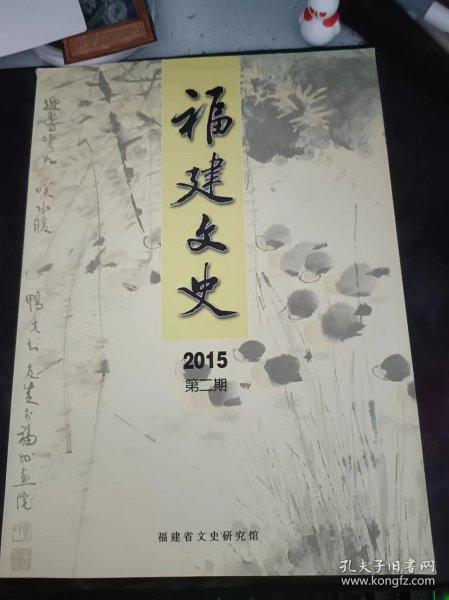 福建文史
2015
第二期
福建省文史研究馆
孔夫子旧书网
www.kongfz.com